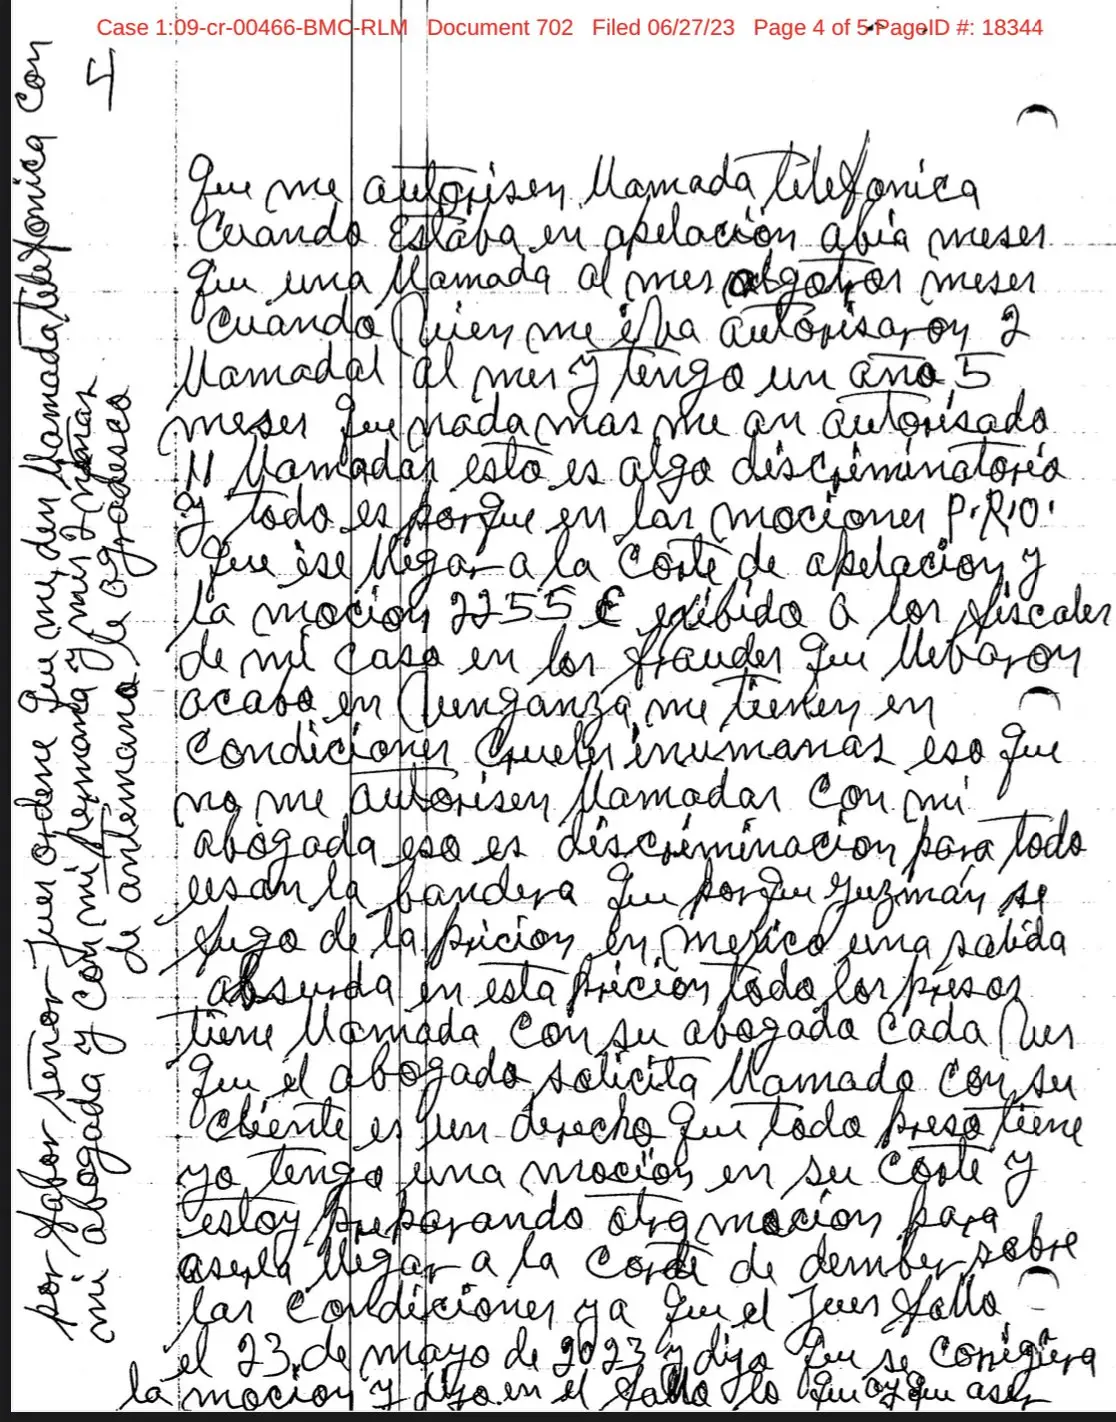 Case 1:09-cr-00466-BMC-RLM Document 702 Filed 06/27/23 Page 4 of 5 PageID #: 18344
5
que me autorisen llamada telefonica
Cuando Estaba en apelacion abia meses
que una llamada al mes algotros meses
cuando vien me iva autorisaron 2
llamadas al mes y tengo un año 5
meses que nada mas me an autorisado
11 llamadas esto es algo discriminatorio
y todo es porque en las mociones P.R.O.
que ise llegar a la Corte de apelacion y
la mocion 2255 E exibido a los fiscales
de mi caso en los fraudes que llebaron
acabo en venganza me tienen en
condiciones crueles inumanas eso que
no me autorisen llamadas con mi
abogada eso es discriminacion para todo
usan la bandera que porque guzmán se
fugo de la pricion en mexico una salida
absurda en esta pricion todo los presos
tiene llamada con su abogado cada ves
que el abogado solicita llamada con su
cliente es un derecho que todo preso tiene
yo tengo una mocion en su Corte y
estoy preparando otra mocion para
aserla llegar a la Corte de dember sobre
las condiciones ya que el Jues fallo
el 23 de mayo de 2023 y dijo que se corrigiera
la mocion y dijo en el fallo lo que ay que aser
por fabor señor Jues ordene que me den llamada telefonica con
mi abogada y con mi hermana y mis 2 niñas
de antemano le agradesco